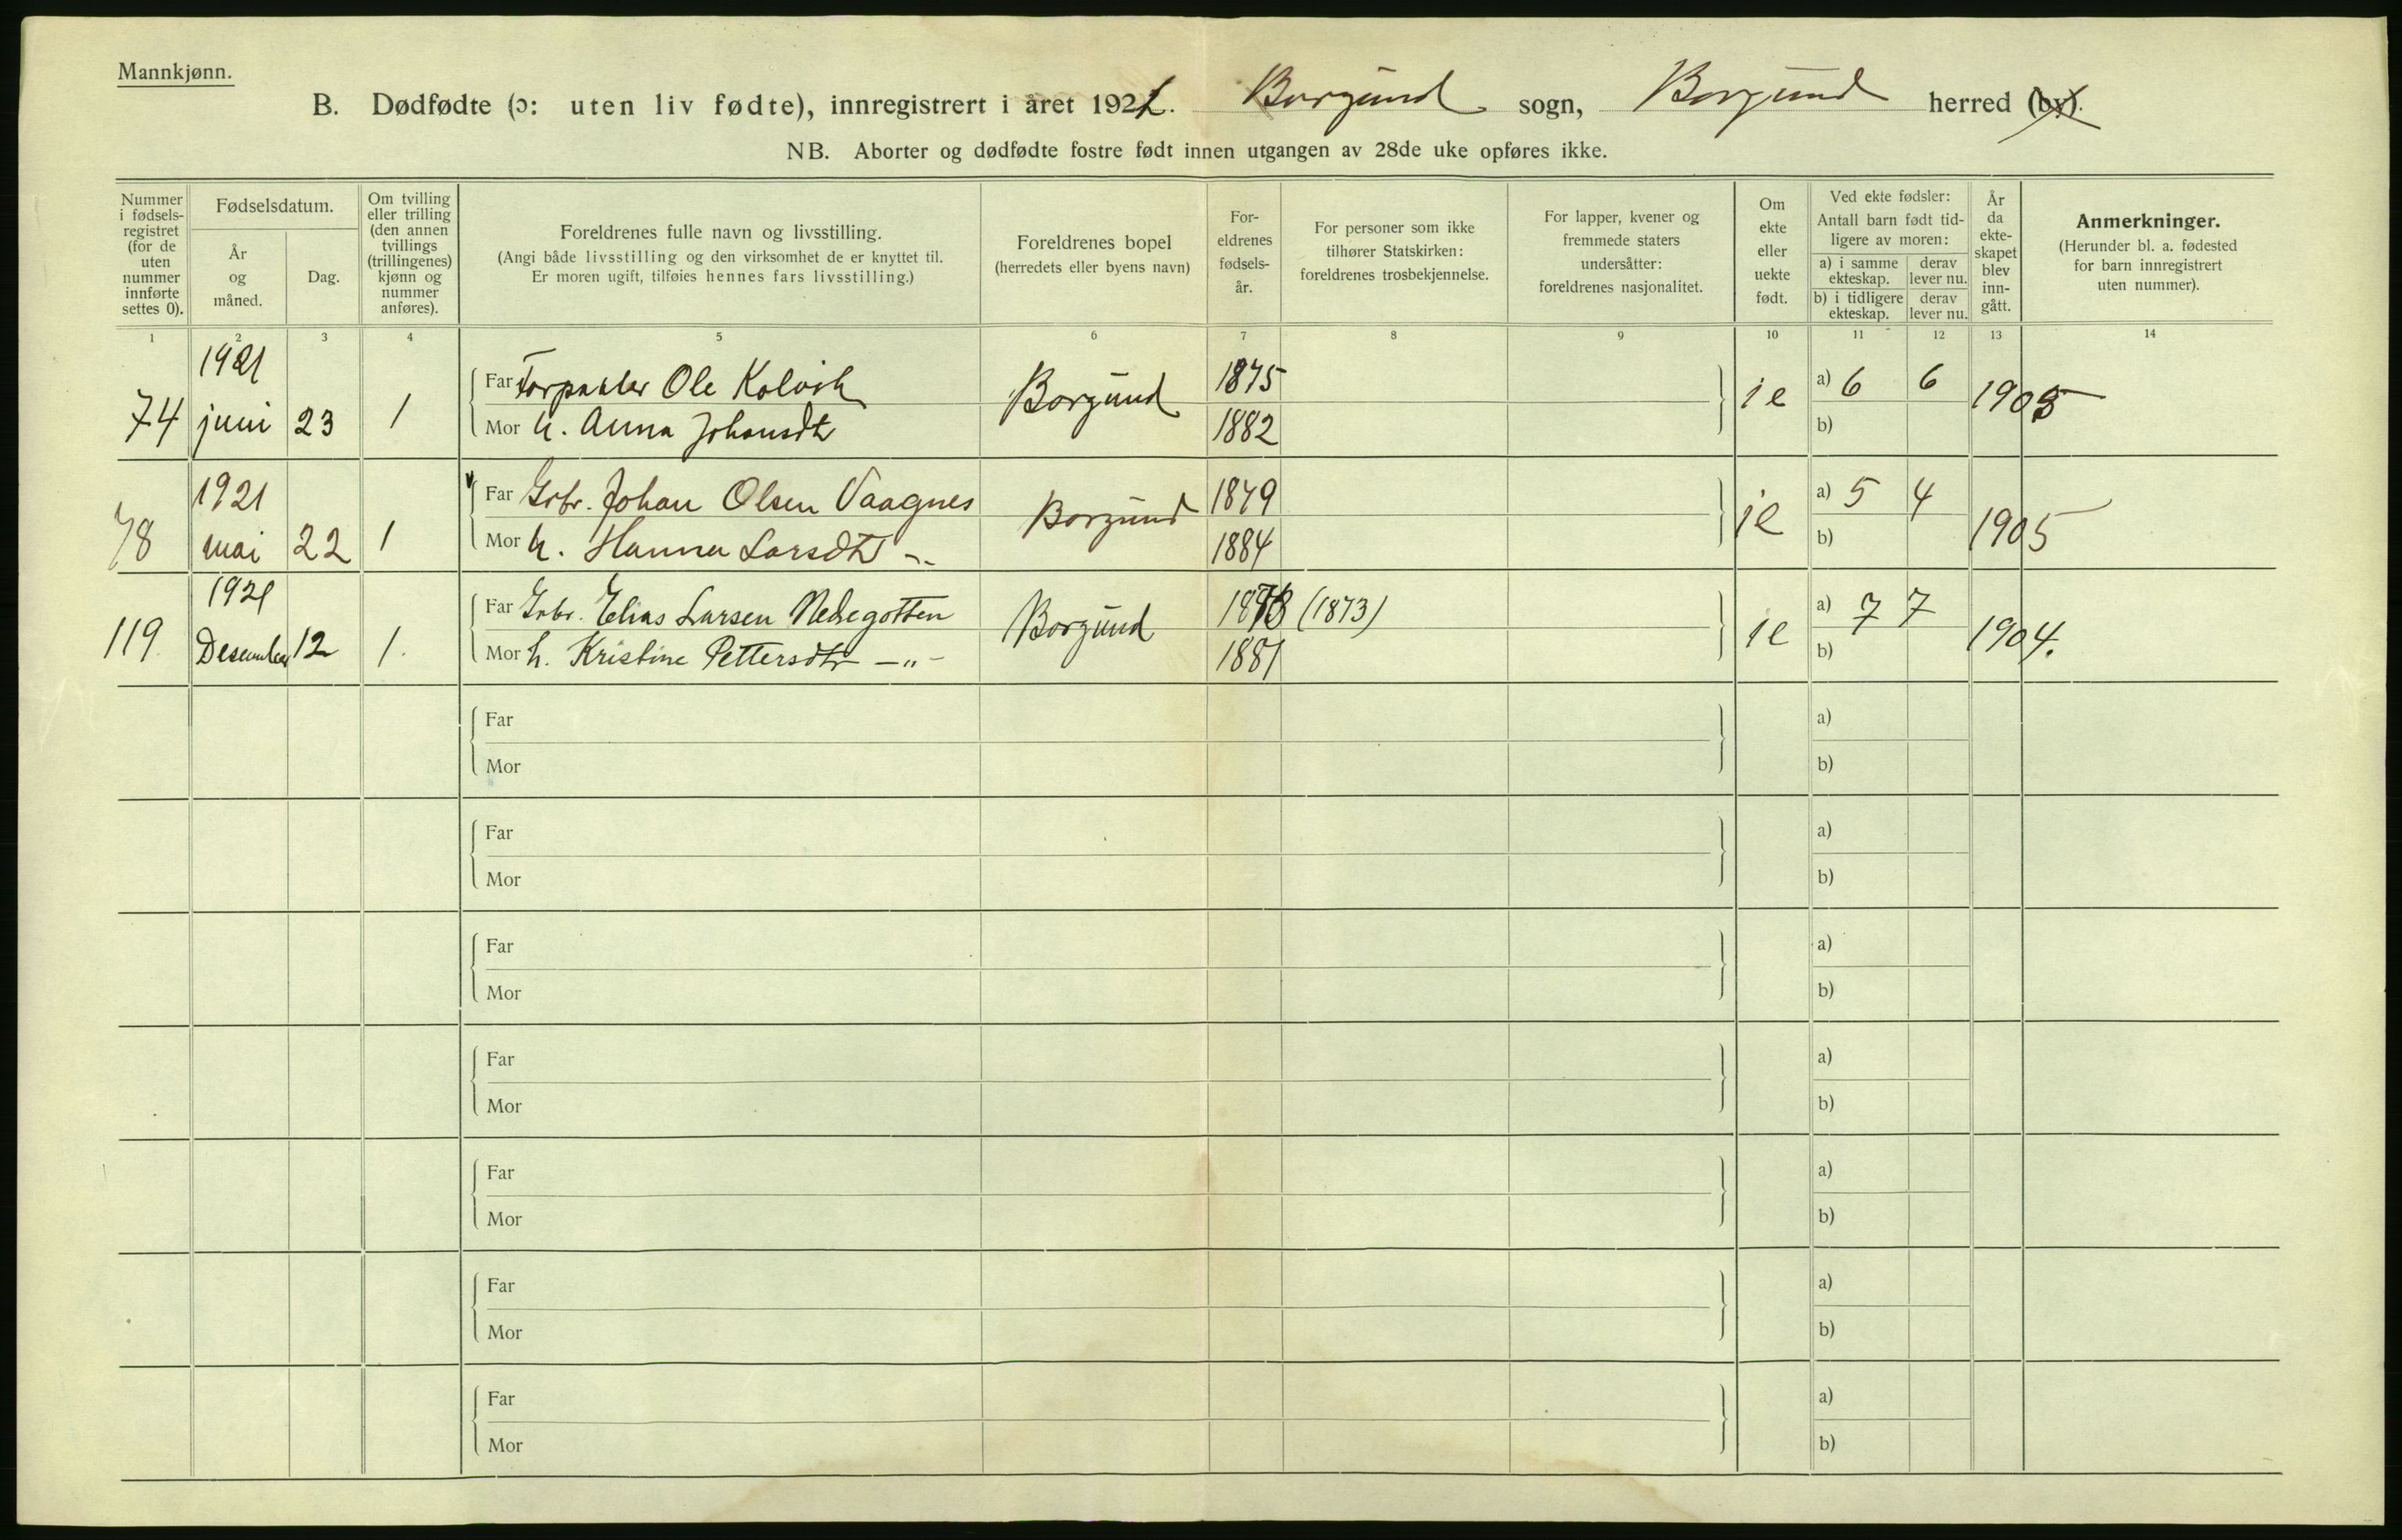 Mannkjønn.
B. Dødfødte (ɔ: uten liv fødte), innregistrert i året 1921. Borgund sogn, Borgund herred (by).
NB. Aborter og dødfødte fostre født innen utgangen av 28de uke opføres ikke.
Nummer i fødsels-registret (for de uten nummer innførte settes 0).
Fødselsdatum.
År og måned.
Dag.
Om tvilling eller trilling (den annen tvillings (trillingenes) kjønn og nummer anføres).
Foreldrenes fulle navn og livsstilling.
(Angi både livsstilling og den virksomhet de er knyttet til.
Er moren ugift, tilføies hennes fars livsstilling.)
Foreldrenes bopel
(herredets eller byens navn)
For-eldrenes fødsels-år.
For personer som ikke tilhører Statskirken: foreldrenes trosbekjennelse.
For lapper, kvener og fremmede staters undersåtter: foreldrenes nasjonalitet.
Om ekte eller uekte født.
Ved ekte fødsler:
Antall barn født tid-ligere av moren:
a) i samme ekteskap. derav lever nu.
b) i tidligere ekteskap. derav lever nu.
År da ekte-skapet blev inn-gått.
Anmerkninger.
(Herunder bl. a. fødested for barn innregistrert uten nummer).
1 2 3 4 5 6 7 8 9 10 11 12 13 14
1921
74 juni 23 1
Far Ole Kolvik Borgund 1875 ie a) 6 6 1905
Mor h. Anna Johansdtr 1882 b)
1921
78 mai 22 1
Far Grbr. Johan Olsen Vaagnes Borgund 1879 ie a) 5 4 1905
Mor h. Hanna Larsdtr -"- 1884 b)
1921
119 Desember 12 1.
Far Grbr. Elias Larsen Nedregotten Borgund (1873) ie a) 7 7 1904.
Mor h. Kristine Pettersdtr -"- 1881 b)
Far a)
Mor b)
Far a)
Mor b)
Far a)
Mor b)
Far a)
Mor b)
Far a)
Mor b)
Far a)
Mor b)
Far a)
Mor b)